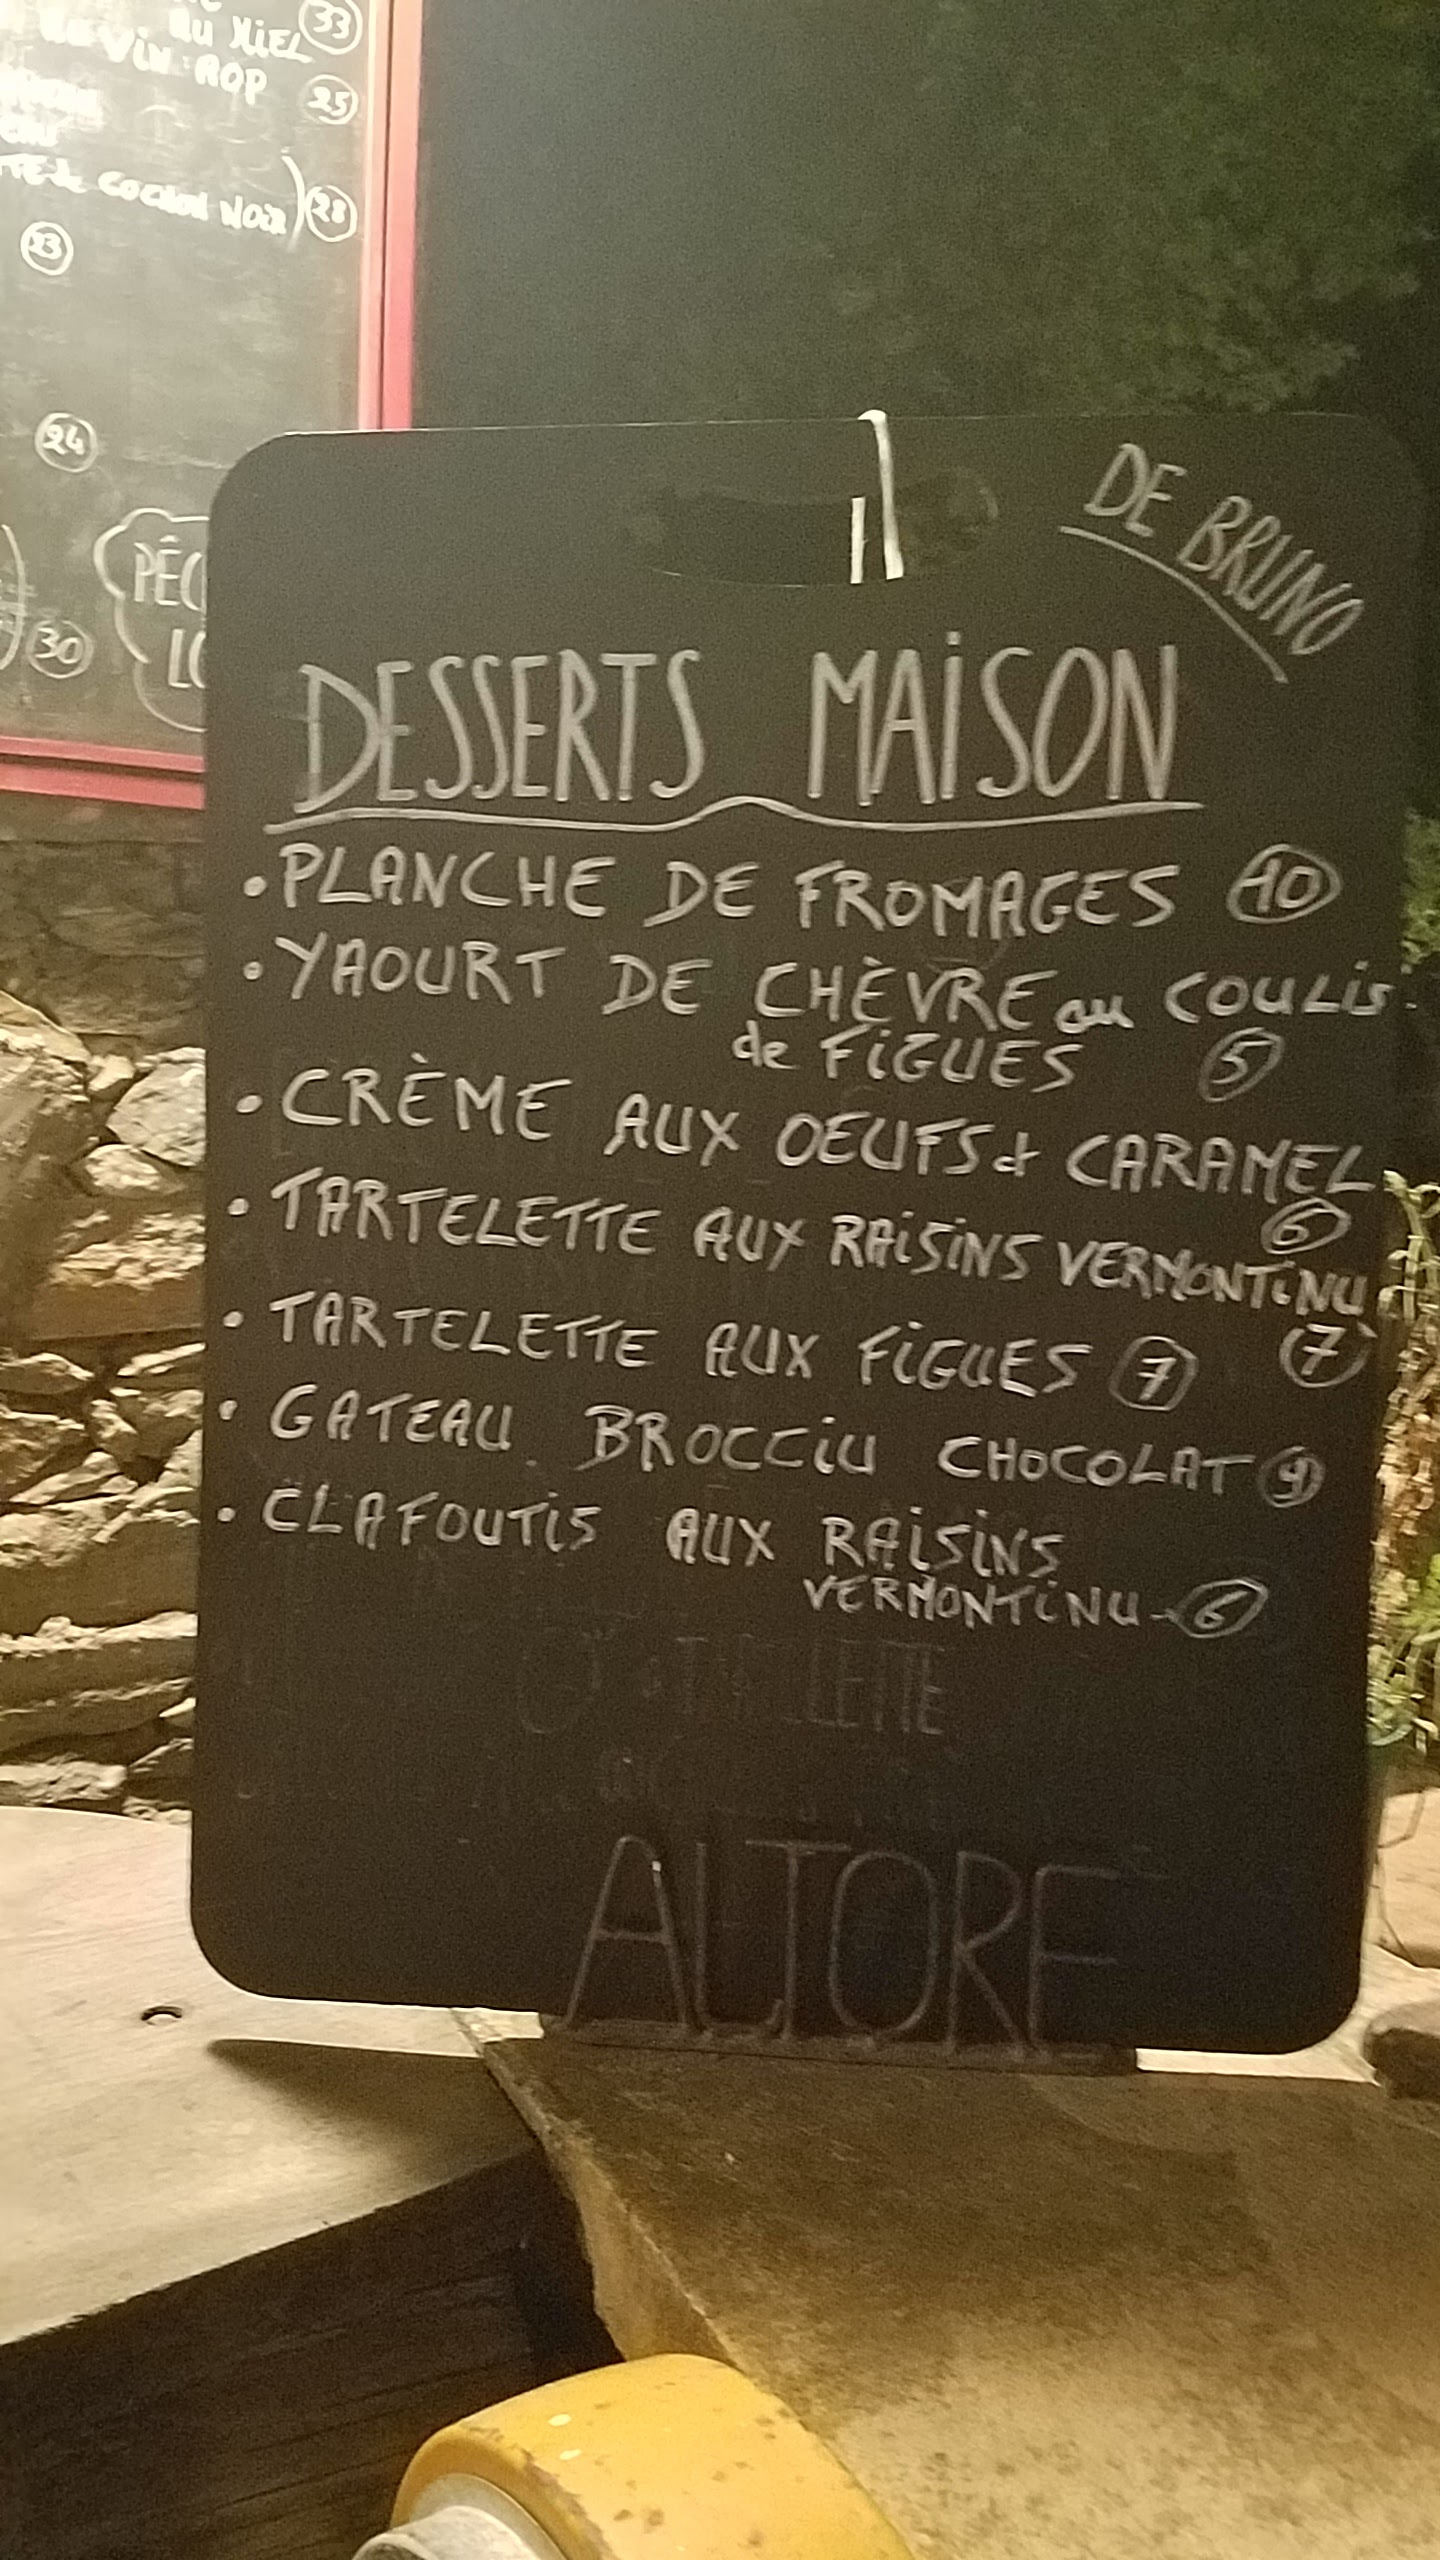 AU MIEL 33
VIN AOP 25
COCHON NOIR) 28
23
24
30
DE BRUNO
DESSERTS MAISON
• PLANCHE DE FROMAGES 10
• YAOURT DE CHÈVRE au COULIS
de FIGUES 5
• CRÈME AUX OEUFS & CARAMEL
6
• TARTELETTE AUX RAISINS VERMONTINU
7
• TARTELETTE AUX FIGUES 7
• GATEAU BROCCIU CHOCOLAT 9
• CLAFOUTIS AUX RAISINS
VERMONTINU - 6
ALTORE